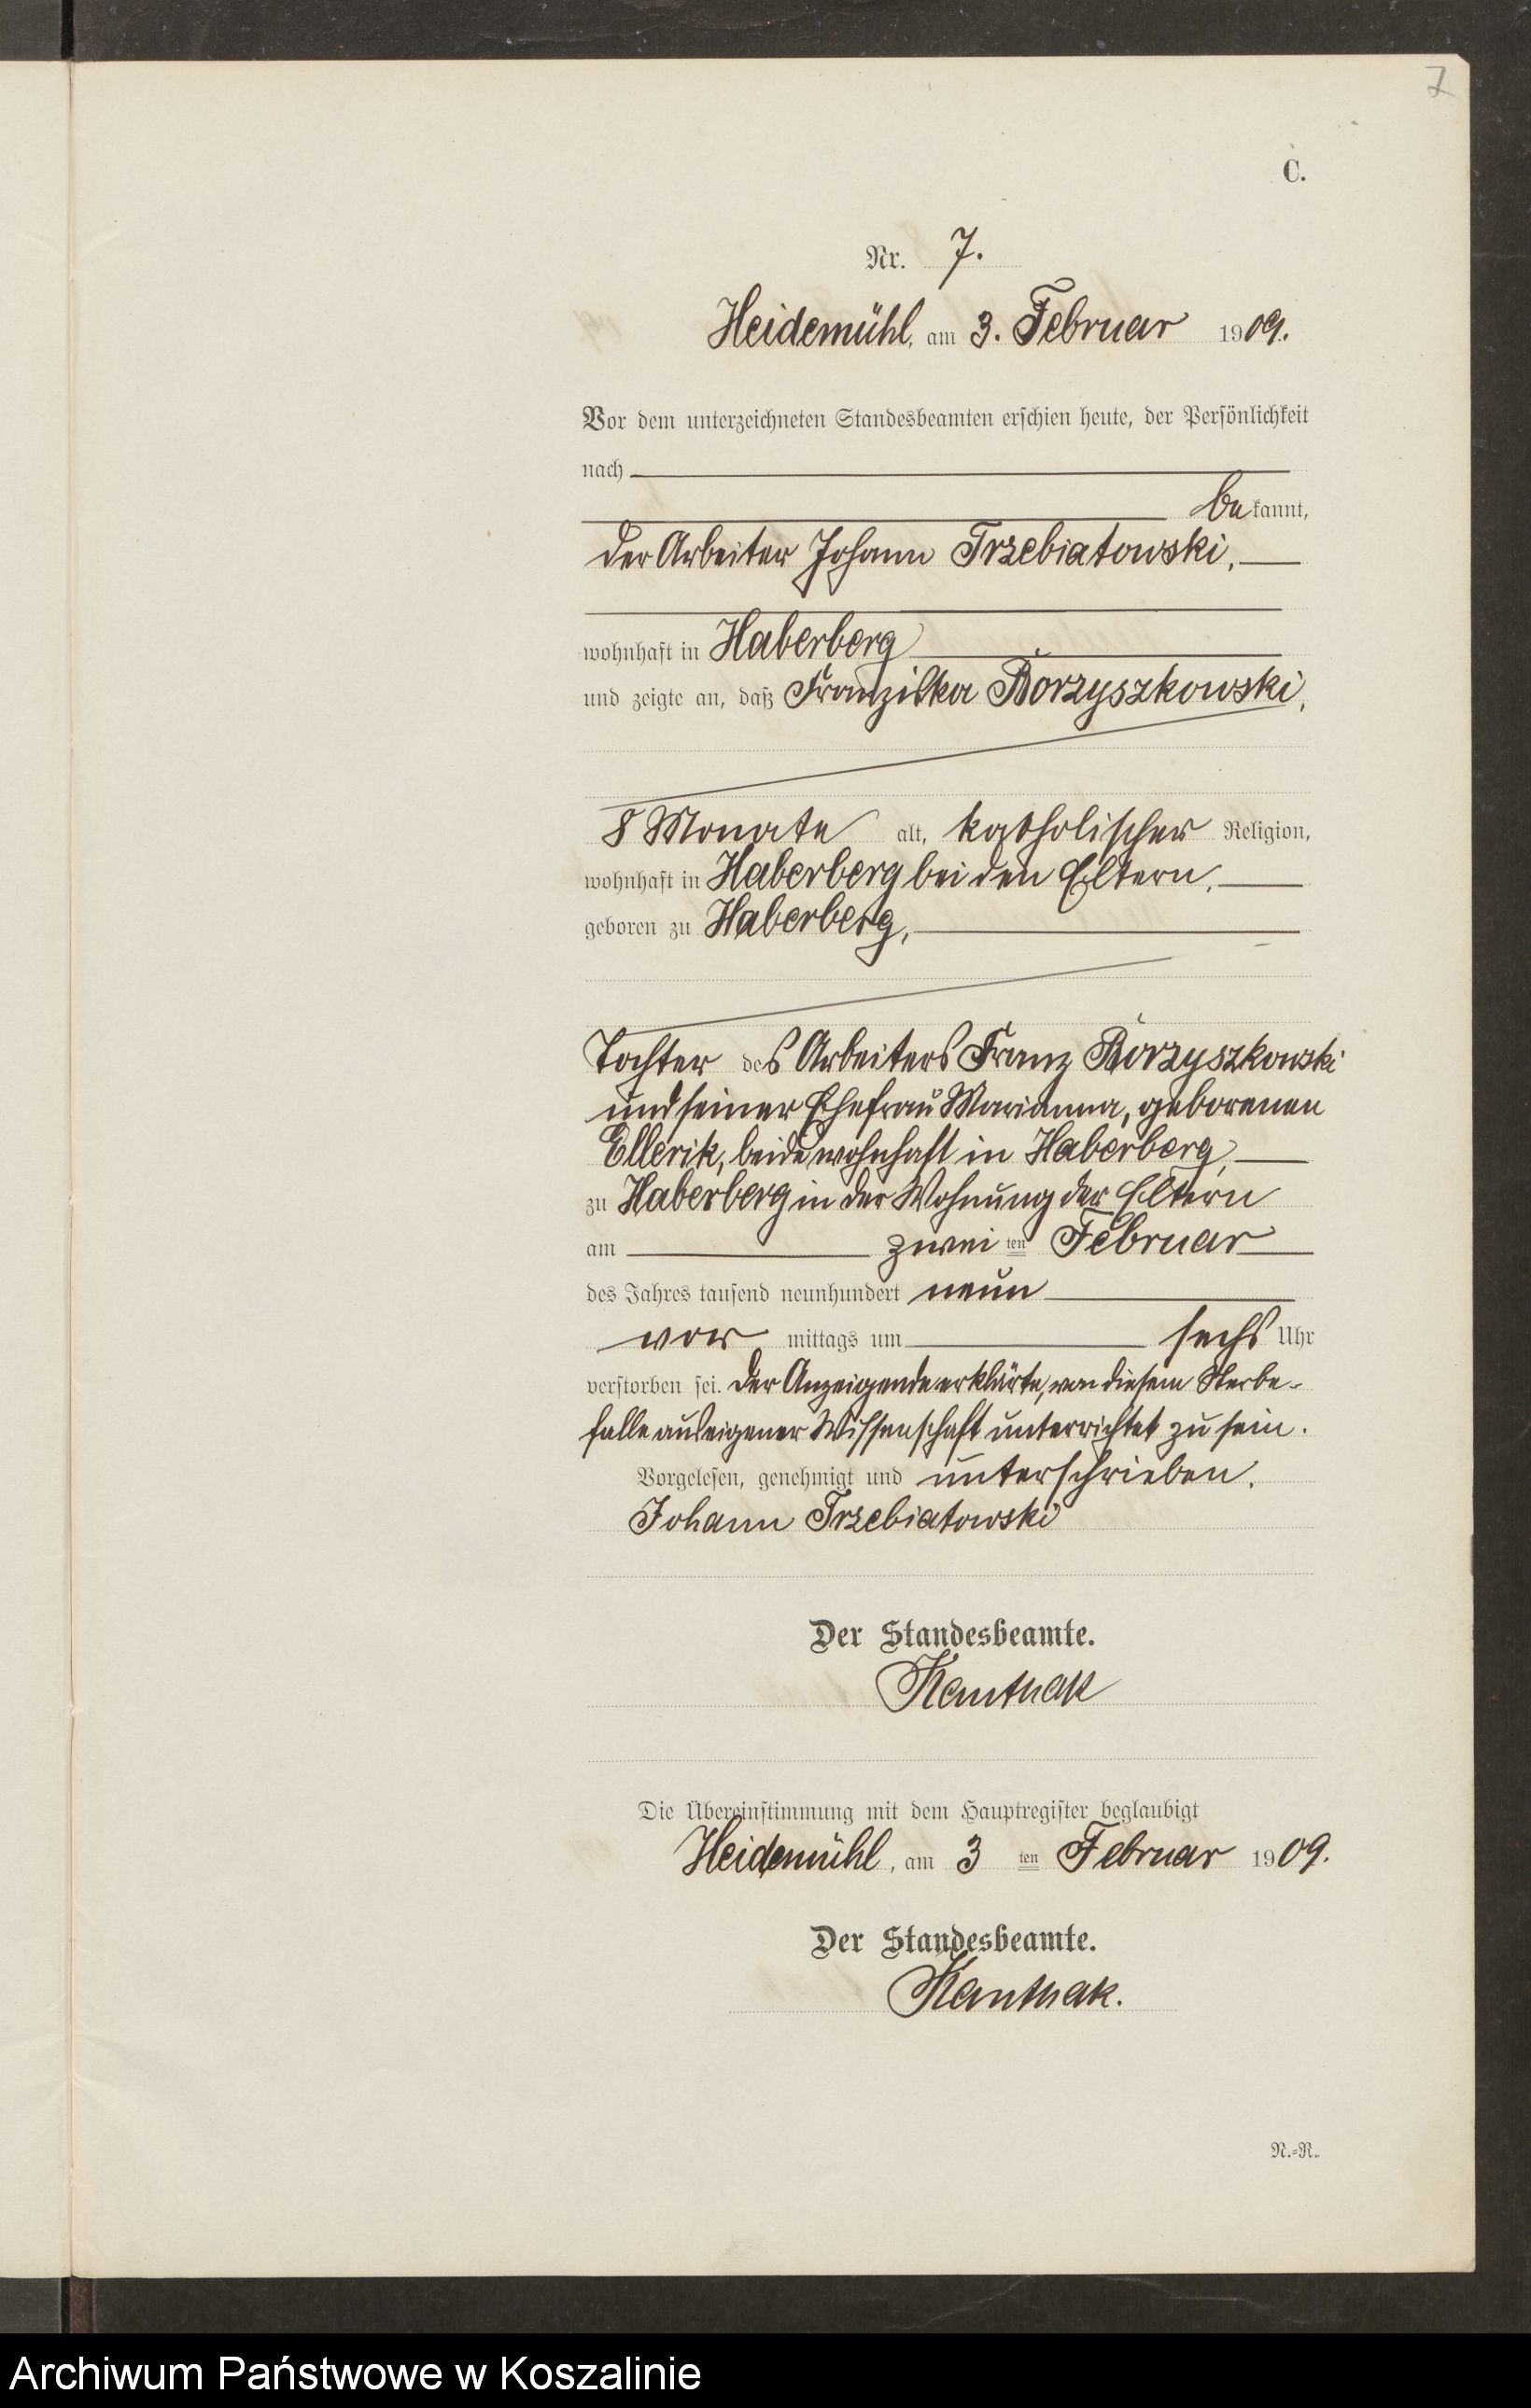 7
C.
Nr. 7.
Heidemühl, am 3. Februar 1909.
Vor dem unterzeichneten Standesbeamten erschien heute, der Persönlichkeit
nach
bekannt,
der Arbeiter Johann Trzebiatowski,
wohnhaft in Haberberg
und zeigte an, daß Franziska Borzyszkowski,
8 Monate alt, katholischer Religion,
wohnhaft in Haberberg bei den Eltern,
geboren zu Haberberg,
Tochter des Arbeiters Franz Borzyszkowski
und seiner Ehefrau Marianna, geborenen
Ellerik, beide wohnhaft in Haberberg,
zu Haberberg in der Wohnung der Eltern
am zweiten Februar
des Jahres tausend neunhundert neun
vor mittags um sechs Uhr
verstorben sei. Der Anzeigende erklärte, von diesem Sterbe-
falle aus eigener Wissenschaft unterrichtet zu sein.
Vorgelesen, genehmigt und unterschrieben.
Johann Trzebiatowski
Der Standesbeamte.
Kanthak
Die Übereinstimmung mit dem Hauptregister beglaubigt
Heidemühl, am 3 ten Februar 1909.
Der Standesbeamte.
Kanthak.
N.=R.
Archiwum Państwowe w Koszalinie